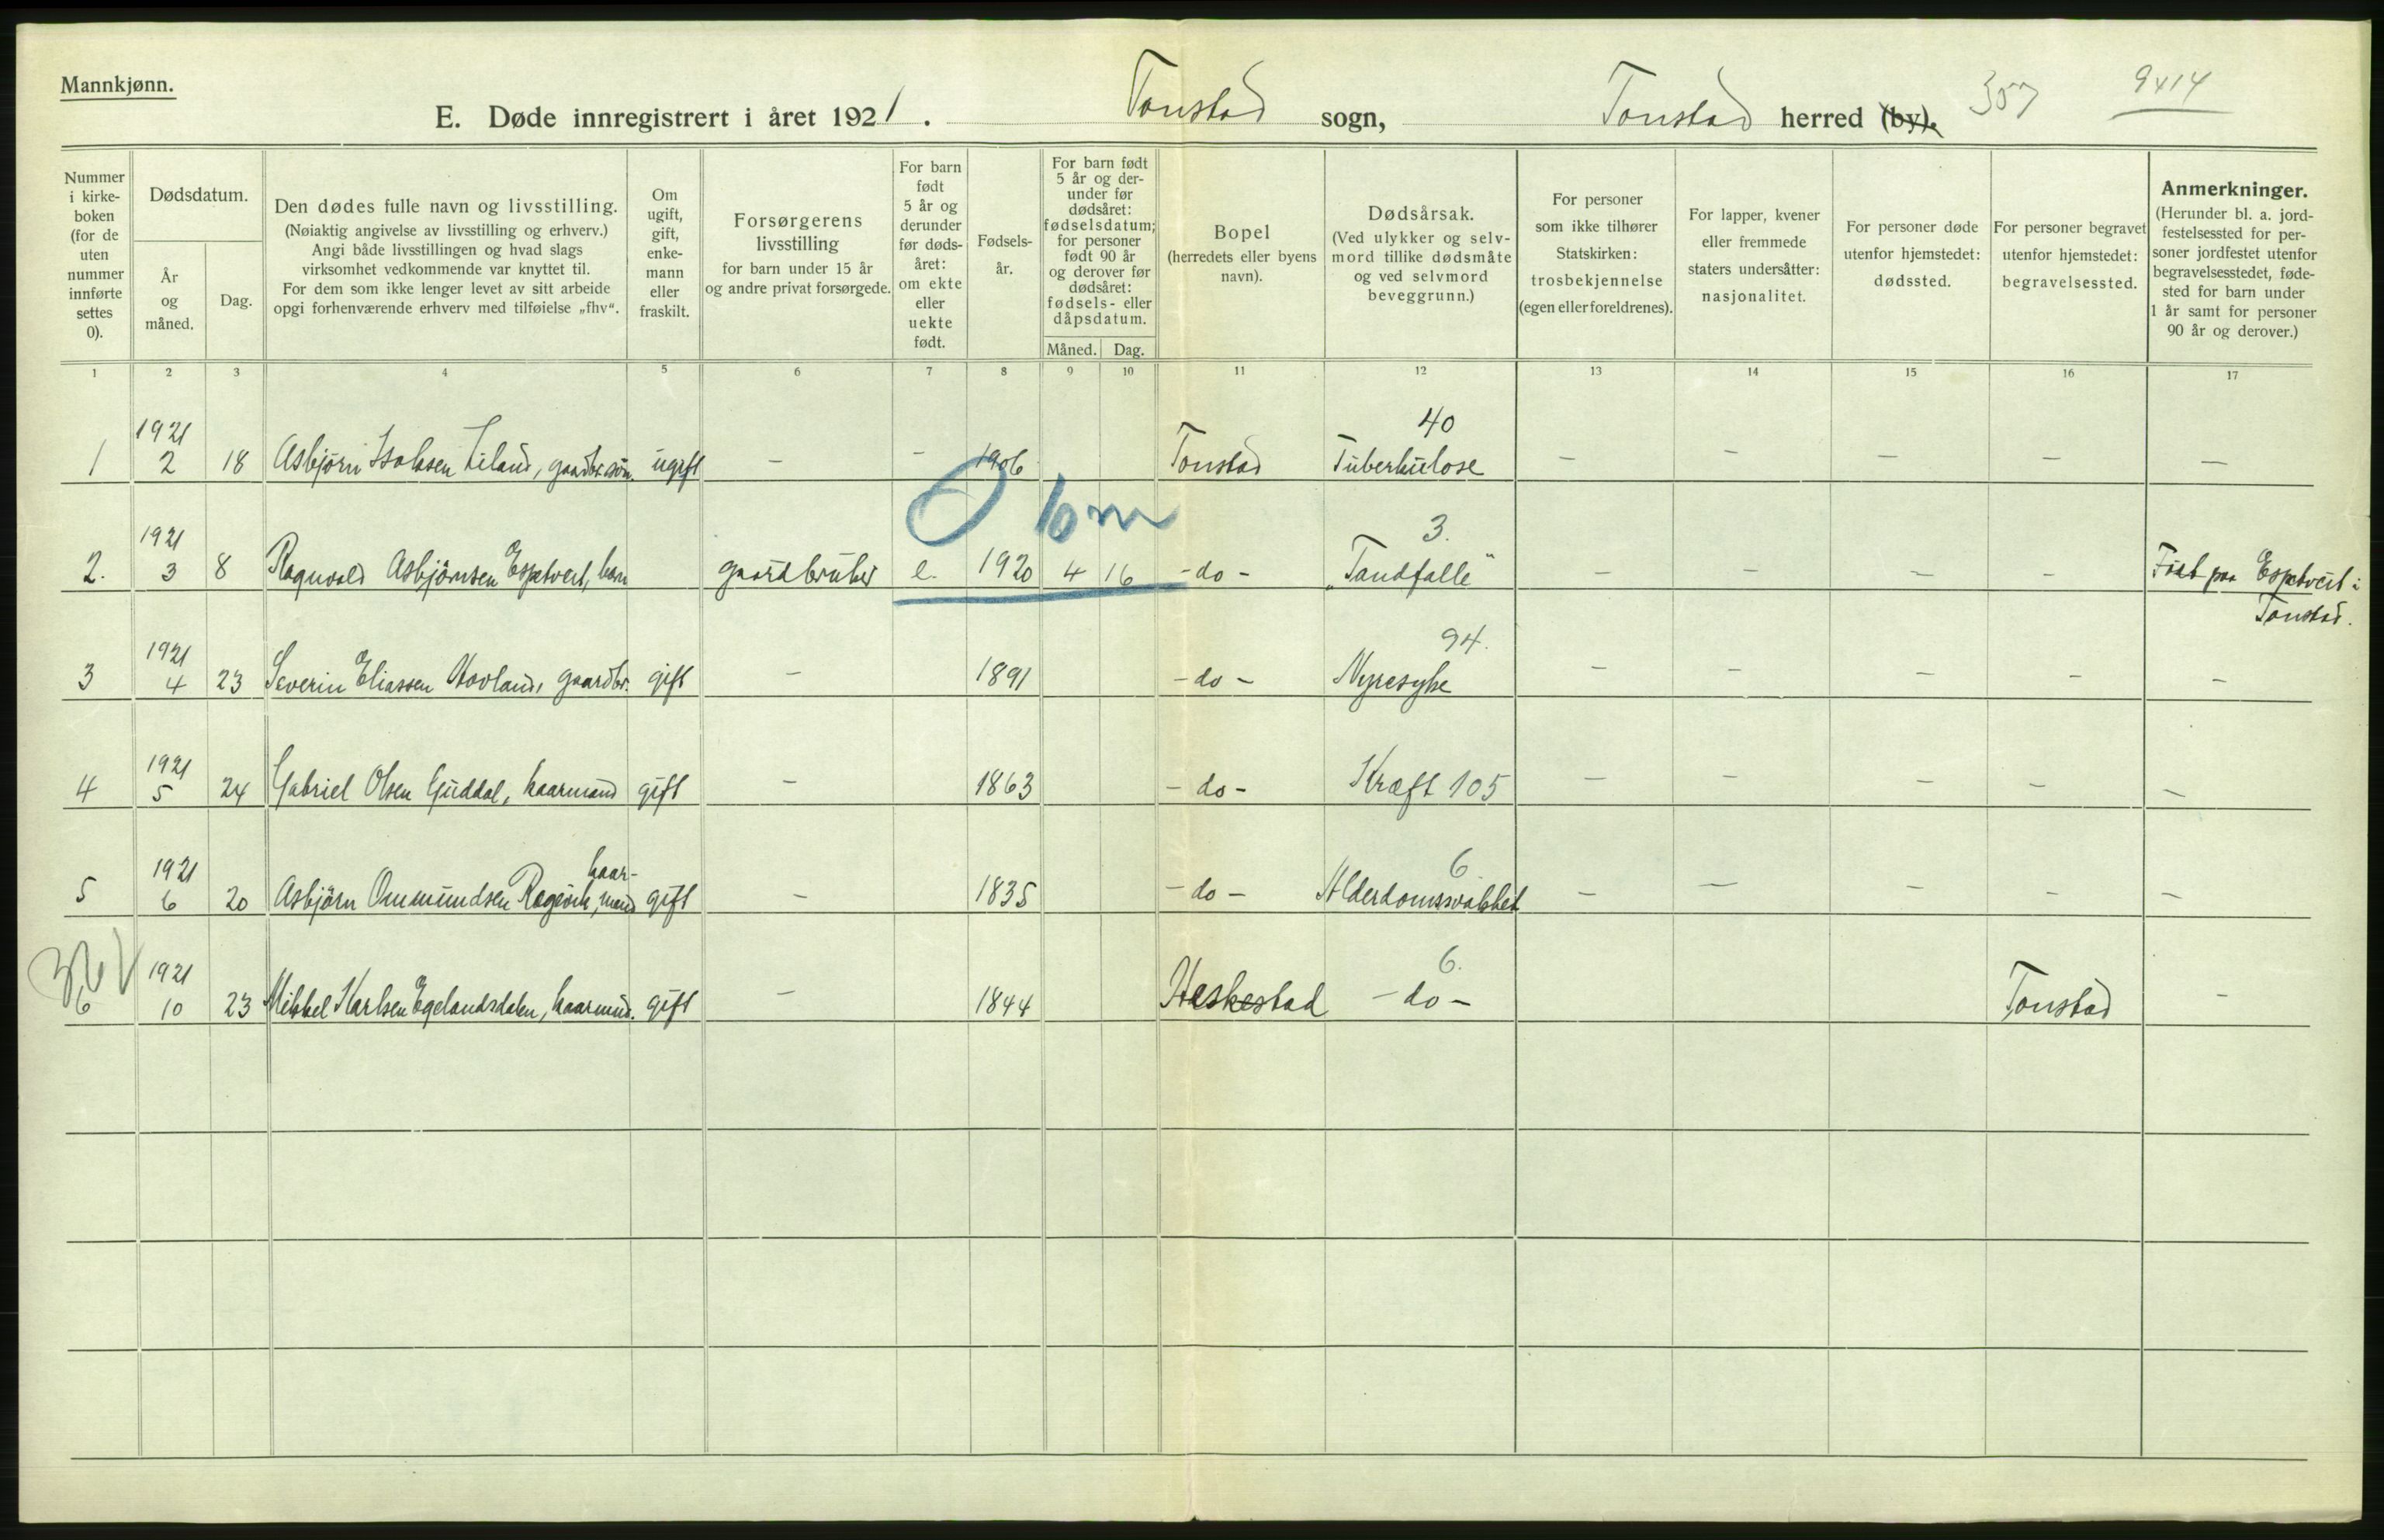 Mannkjønn.
E. Døde innregistrert i året 1921. Tonstad sogn, Tonstad herred (by). 357 9414
Nummer i kirke- boken (for de uten nummer innførte settes 0).
Dødsdatum.
År og måned.
Dag.
Den dødes fulle navn og livsstilling.
(Nøiaktig angivelse av livsstilling og erhverv.)
Angi både livsstillingen og hvad slags
virksomhet vedkommende var knyttet til.
For dem som ikke lenger levet av sitt arbeide
opgi forhenværende erhverv med tilføielse „fhv“.
Om ugift, gift, enke- mann eller fraskilt.
Forsørgerens livsstilling
for barn under 15 år
og andre privat forsørgede.
For barn født 5 år og derunder før døds- året: om ekte eller uekte født.
Fødsels- år.
For barn født 5 år og der- under før dødsåret: fødselsdatum; for personer født 90 år og derover før dødsåret: fødsels- eller dåpsdatum.
Måned. Dag.
Bopel
(herredets eller byens navn).
Dødsårsak.
(Ved ulykker og selv- mord tillike dødsmåte og ved selvmord beveggrunn.)
For personer som ikke tilhører Statskirken: trosbekjennelse (egen eller foreldrenes).
For lapper, kvener eller fremmede staters undersåtter: nasjonalitet.
For personer døde utenfor hjemstedet: dødssted.
For personer begravet utenfor hjemstedet: begravelsessted.
Anmerkninger.
(Herunder bl. a. jord- festelsessted for per- soner jordfestet utenfor begravelsesstedet, føde- sted for barn under 1 år samt for personer 90 år og derover.)
1 2 3 4 5 6 7 8 9 10 11 12 13 14 15 16 17
1921 40
1 2 18 Asbjørn Isaksen Liland, gaardbr.søn. ugift – – 1906 Tonstad Tuberkulose – – – – –
0 10 m
1921 3.
2. 3 8 Ragnvald Asbjörnsen Espetveit, barn gaardbruker e. 1920 4 16 - do - „Tandfalle“ – – – – Født paa Espetveit i
Tonstad.
1921 94.
3 4 23 Severin Eliassen Hovland, gaardbr. gift – 1891 - do - Nyresyke – – – – –
1921
4 5 24 Gabriel Olsen Guddal, kaarmand gift – 1863 - do - Kræft 105 – – – – –
1921 kaar- 6
5 6 20 Asbjörn Ommundsen Røgevik, mand gift – 1835 - do - Alderdomssvakhet – – – – –
1921 6.
6 10 23 Mikkel Karlsen Egelandsdalen, kaarmnd. gift – 1844 Heskestad - do - Tonstad –